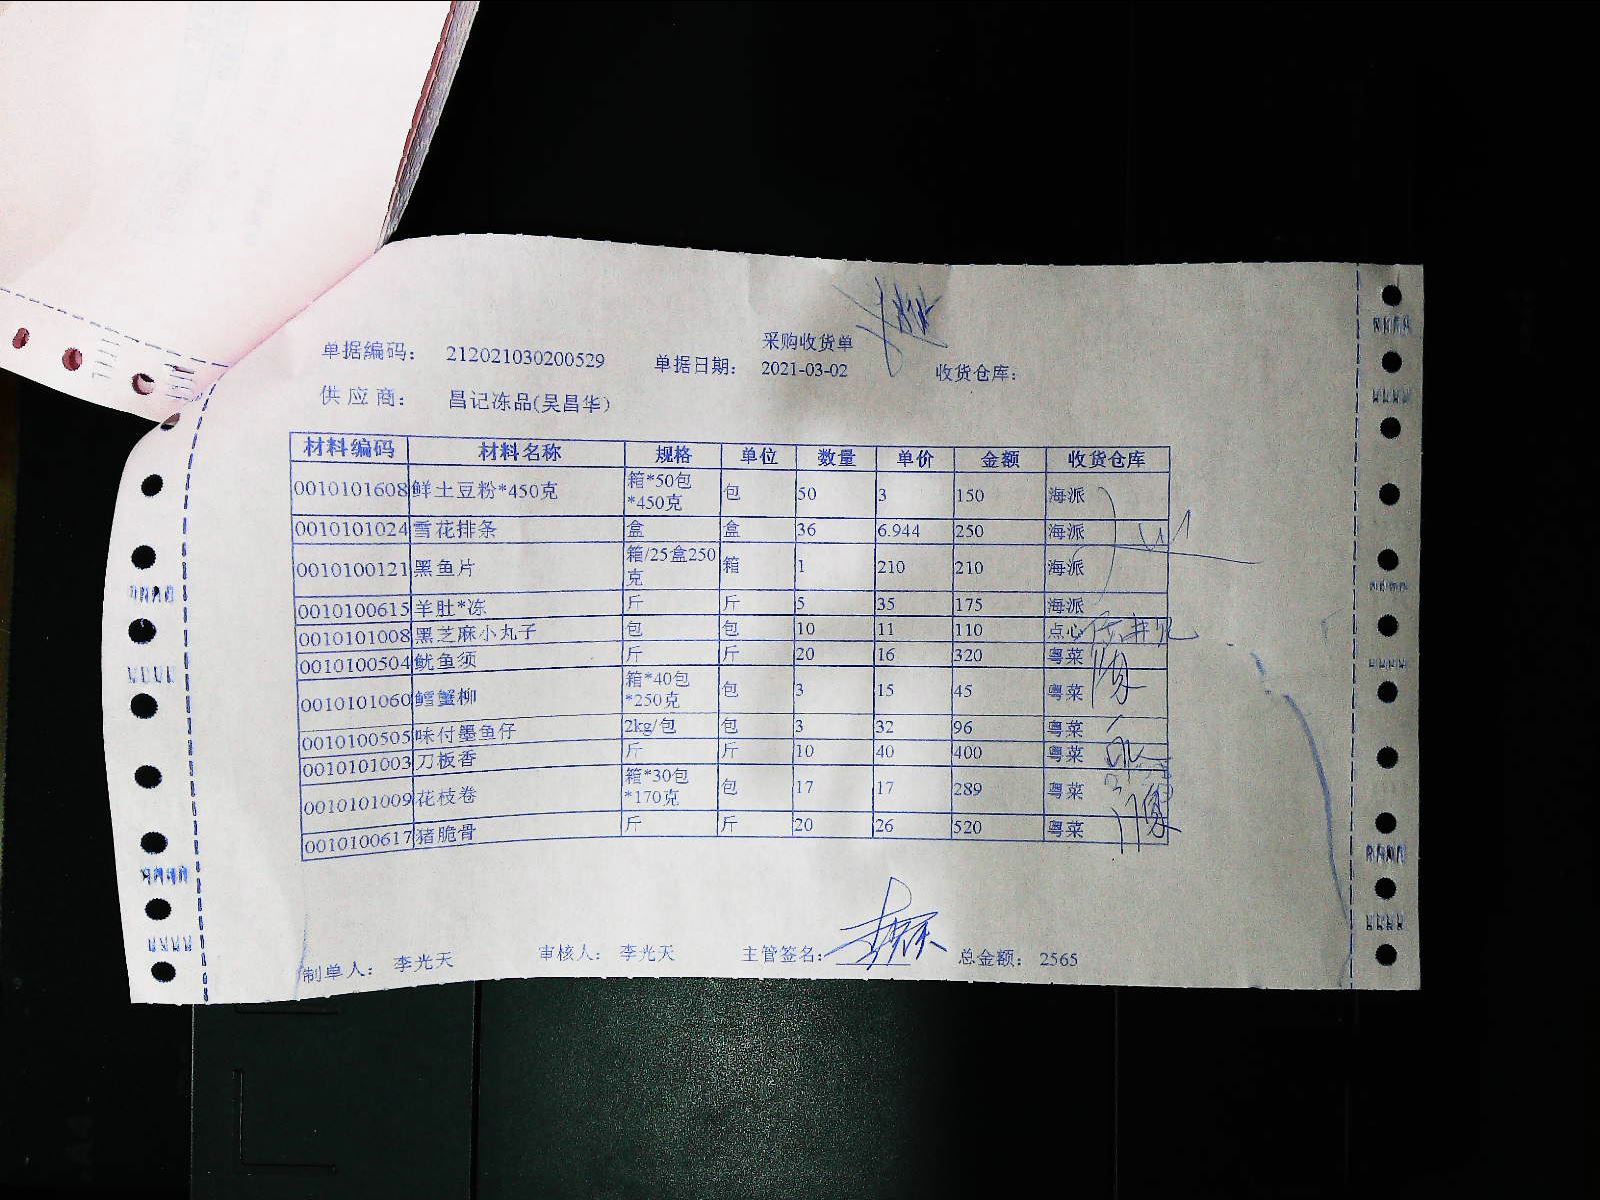 采购收货单
单据编码： 212021030200529 单据日期： 2021-03-02 收货仓库：
供应商： 昌记冻品(吴昌华)
材料编码 材料名称 规格 单位 数量 单价 金额 收货仓库
0010101608 鲜土豆粉*450克 箱*50包*450克 包 50 3 150 海派
0010101024 雪花排条 盒 盒 36 6.944 250 海派
0010100121 黑鱼片 箱/25盒250克 箱 1 210 210 海派
0010100615 羊肚*冻 斤 斤 5 35 175 海派
0010101008 黑芝麻小丸子 包 包 10 11 110 点心
0010100504 鱿鱼须 斤 斤 20 16 320 粤菜
0010101060 鳕蟹柳 箱*40包*250克 包 3 15 45 粤菜
0010100505 味付墨鱼仔 2kg/包 包 3 32 96 粤菜
0010101003 刀板香 斤 斤 10 40 400 粤菜
0010101009 花枝卷 箱*30包*170克 包 17 17 289 粤菜
0010100617 猪脆骨 斤 斤 20 26 520 粤菜
制单人： 李光天 审核人： 李光天 主管签名： 总金额： 2565